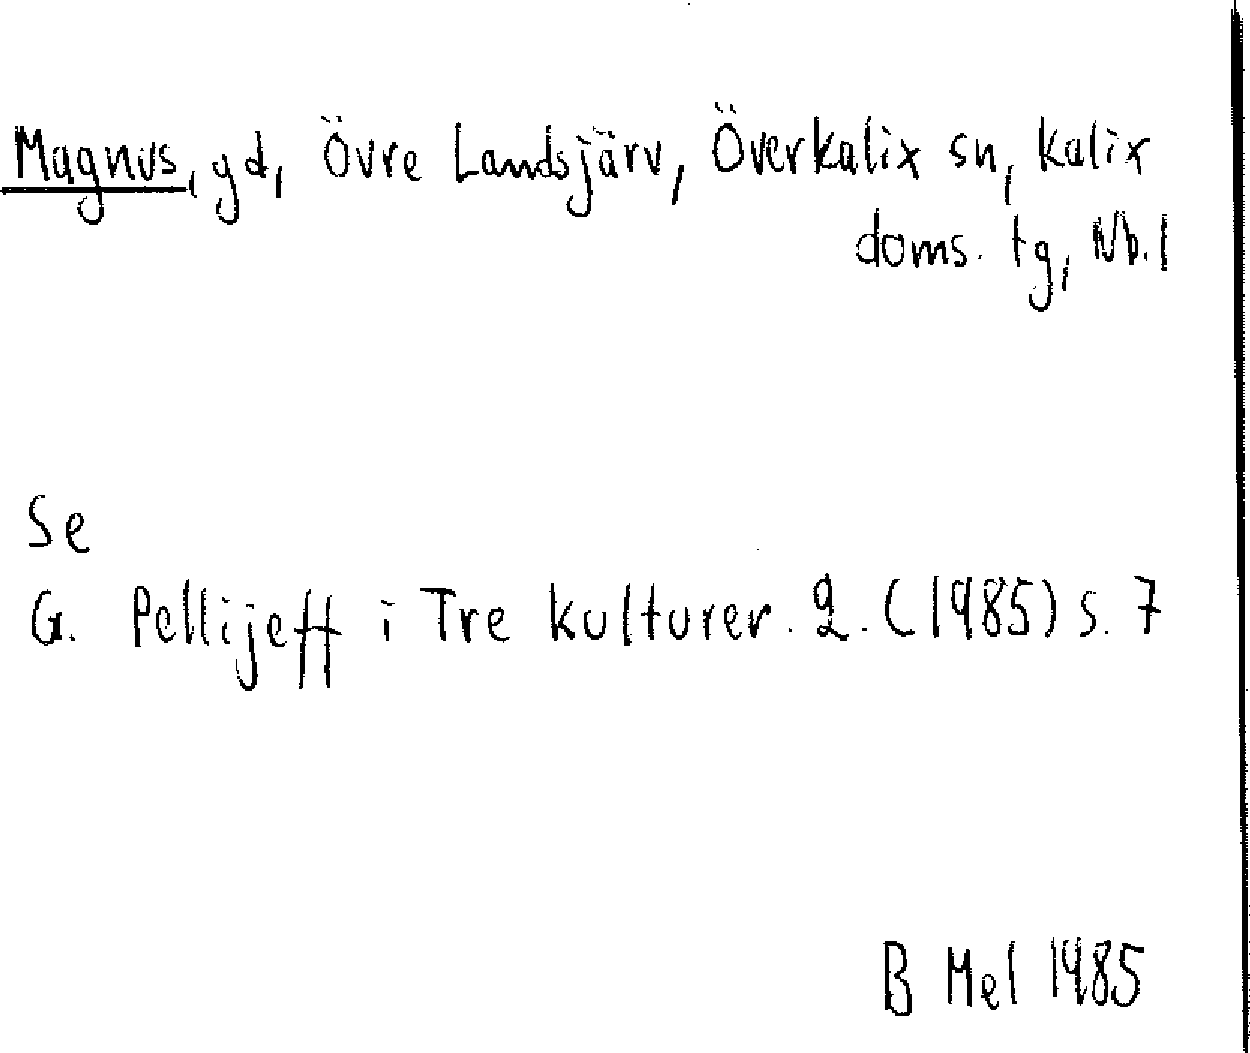 Magnus, gd, Övre Landsjärv, Överkalix sn, Kalix
doms. tg, Nb. l
Se
G. Pellijeff i Tre kulturer. 2. (1985) s. 7
B Mel 1985